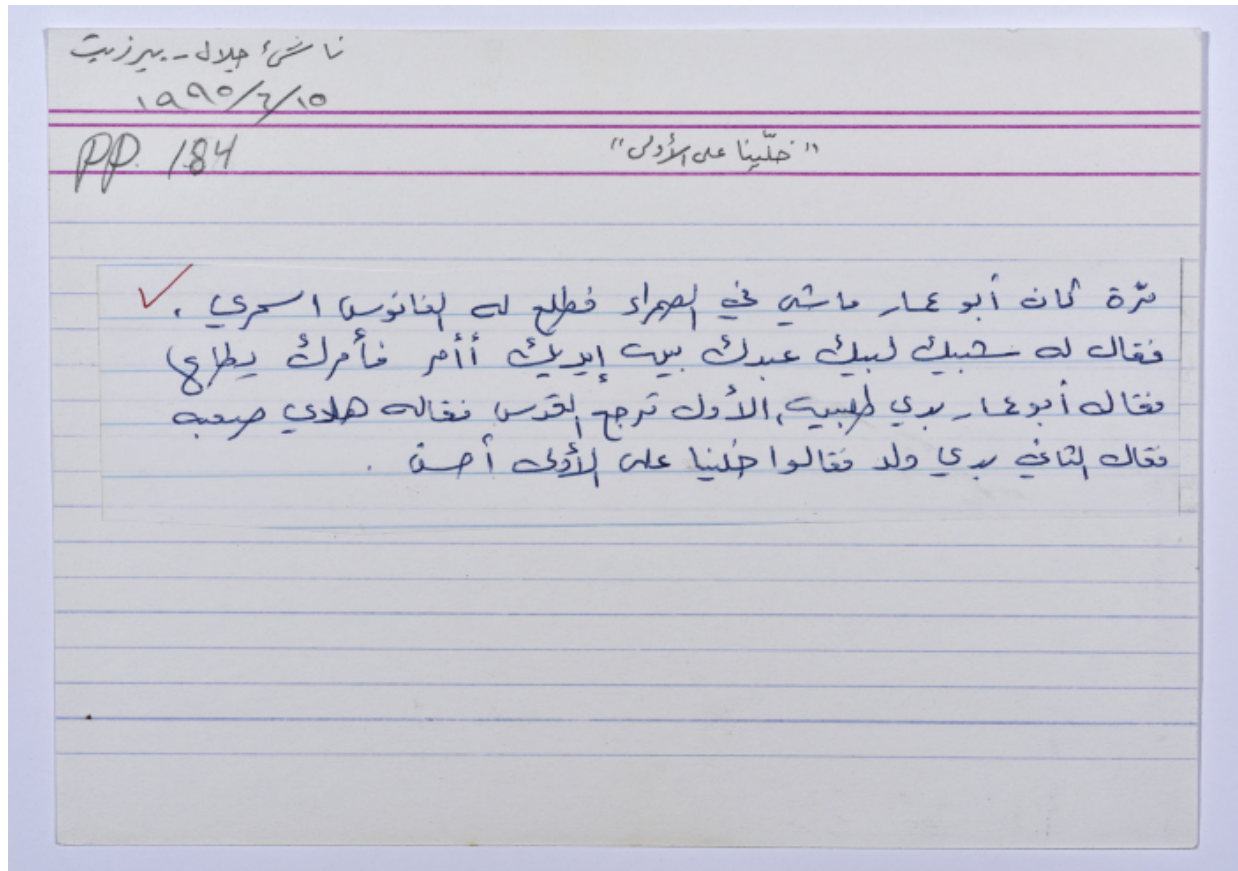 ناشئ جلال - بيرزيت
١٩٩٥/٦/١٥
PP. 184
"خلّينا على الأولى"
مرّة كان أبو عمار ماشي في الصحراء فطلع له الفانوس السحري .
فقال له شبيك لبيك عبدك بين إيديك أأمر فأمرك يطاع
فقال أبو عمار بدي طلبين، الأول ترجع القدس فقاله هلاي صعبه
فقال الثاني بدي ولد فقالوا خلينا على الأولى أحسن .